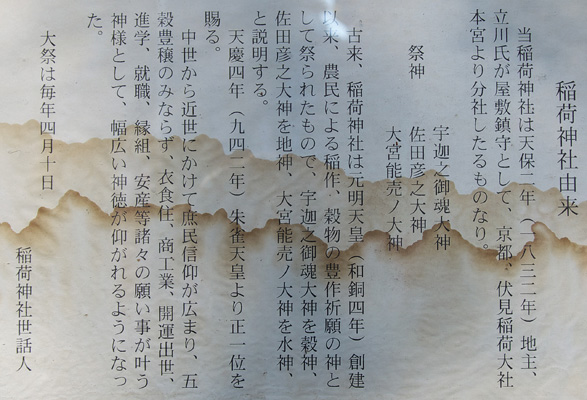 稲荷神社由来
当稲荷神社は天保二年（一八三二年）地主、
立川氏が屋敷鎮守として、京都、伏見稲荷大社
本宮より分社したるものなり。
祭神　宇迦之御魂大神
佐田彦之大神
大宮能売ノ大神
古来、稲荷神社は元明天皇（和銅四年）創建
以来、農民による稲作、穀物の豊作祈願の神と
して祭られたもので、宇迦之御魂大神を穀神、
佐田彦之大神を地神、大宮能売ノ大神を水神、
と説明する。
天慶四年（九四二年）朱雀天皇より正一位を
賜る。
中世から近世にかけて庶民信仰が広まり、五
穀豊穣のみならず、衣食住、商工業、開運出世、
進学、就職、縁組、安産等諸々の願い事が叶う
神様として、幅広い神徳が仰がれるようになっ
た。
大祭は毎年四月十日
稲荷神社世話人